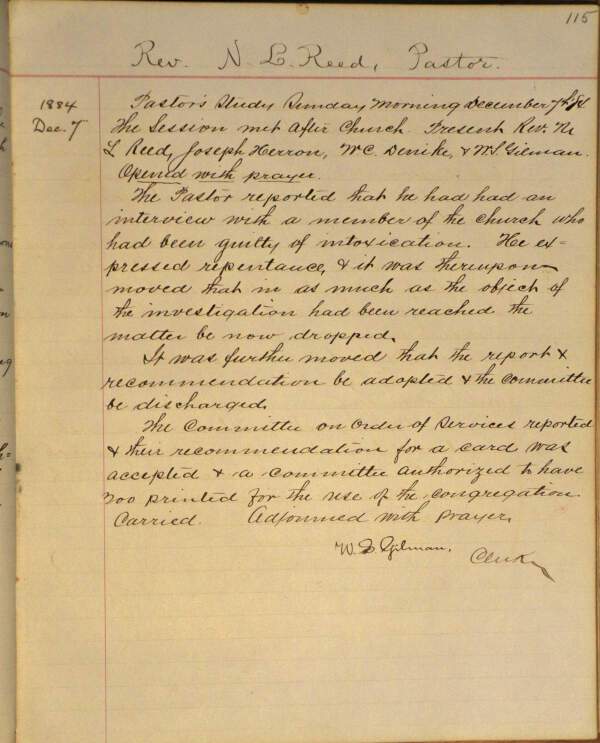 115
Rev. N. L. Reed, Pastor.
1884
Dec. 7
Pastor's Study Sunday Morning December 7th/84
The Session met after Church. Present Rev. N.
L Reed, Joseph Herron, W.C. Denike, & W.S. Gilman.
Opened with prayer.
The Pastor reported that he had had an
interview with a member of the church who
had been guilty of intoxication. He ex=
pressed repentance, & it was thereupon
moved that in as much as the object of
the investigation had been reached the
matter be now dropped.
It was further moved that the report &
recommendation be adopted & the Committee
be discharged.
The Committee on Order of Services reported
& their recommendation for a card was
accepted & a committee authorized to have
printed for the use of the congregation.
Carried. Adjourned with Prayer.
W. S. Gilman,
Clerk